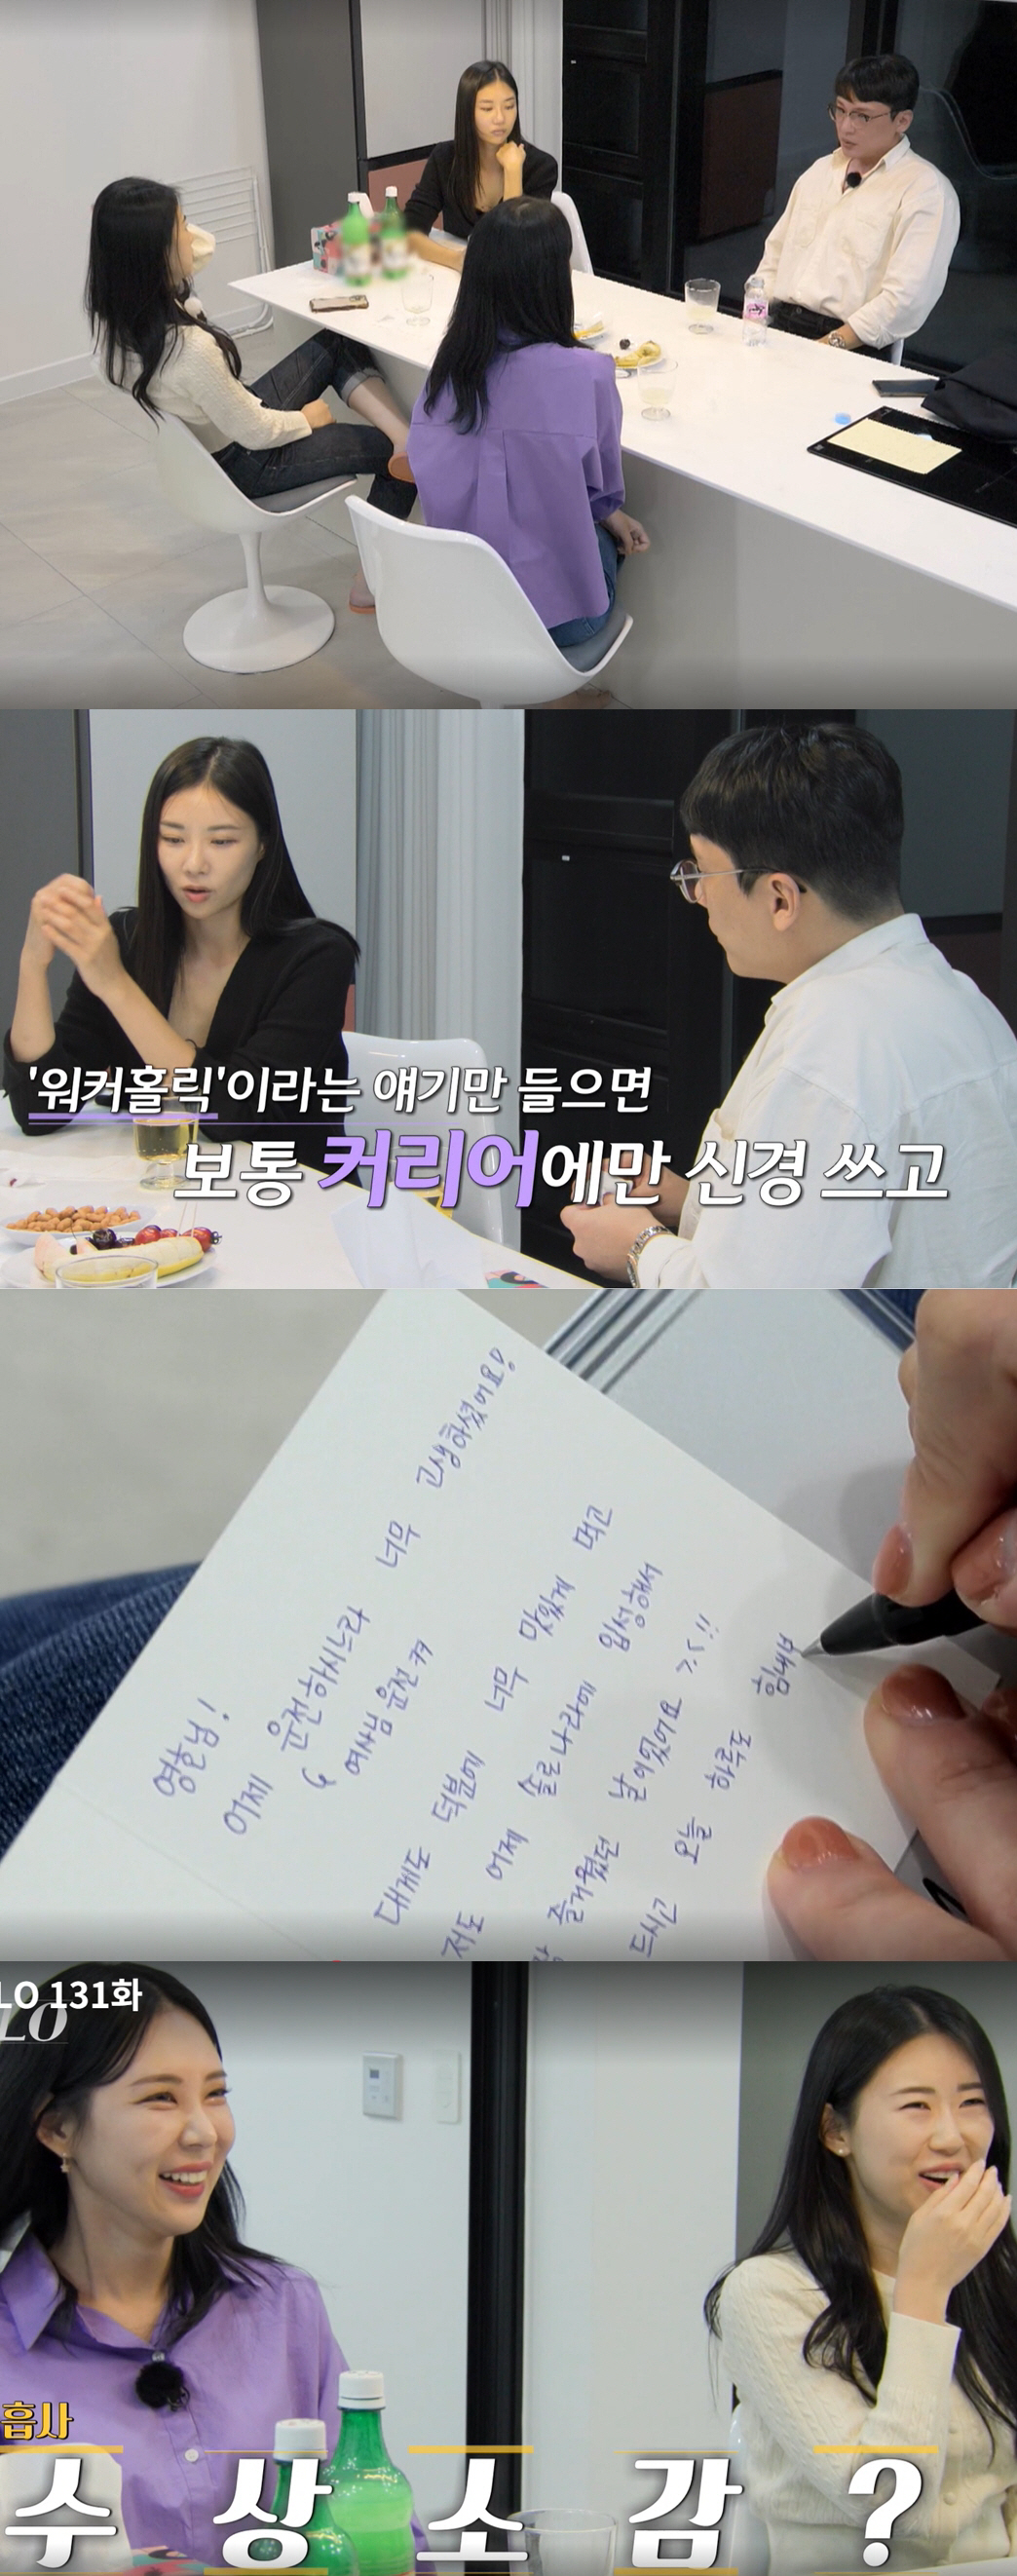 '워커홀릭'이라는 얘기만 들으면
보통 커리어에만 신경 쓰고
영철님!
어제 운전하시느라 너무 고생하셨어요!
여사님 운전 ㅋㅋ
대게도 덕분에 너무 맛있게 먹고
저도 어제 솔로나라에 입성해서
즐거웠던 날이었어요 ㅎㅎ!!
드시고 오늘 하루도 힘내
LO 131화
LO
흡사
수상소감?